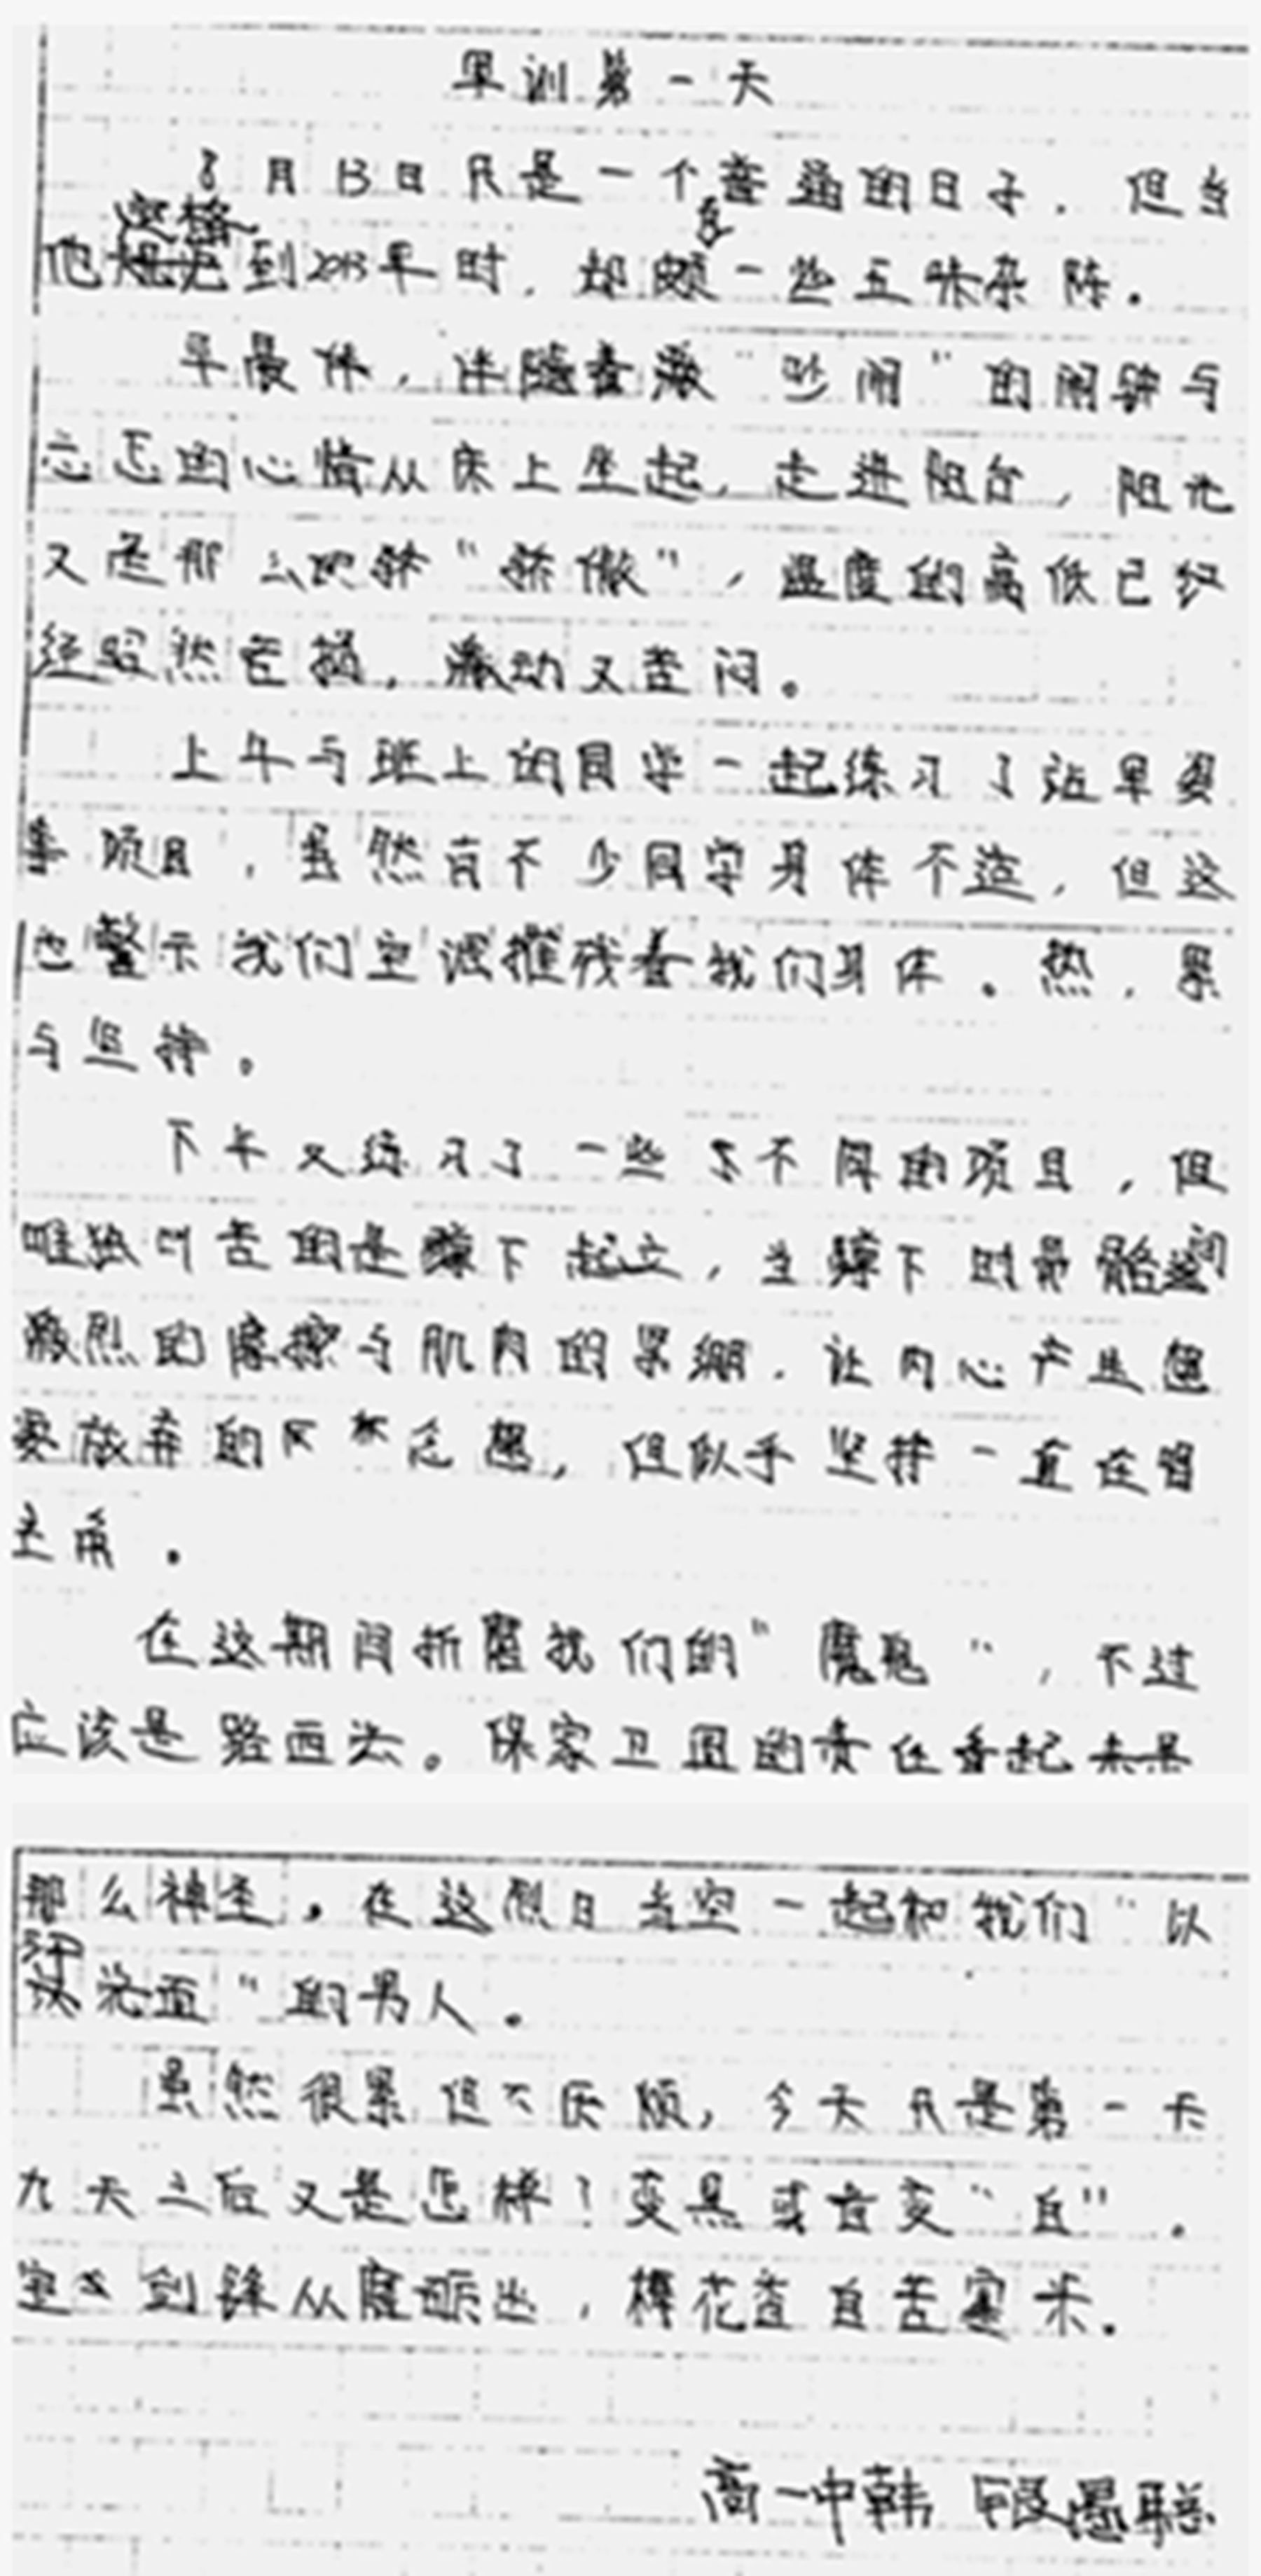 军训第一天
8月13日只是一个普通的日子.但当
他定格到2013年时,却颇有一些五味杂陈.
早晨伴,伴随着激"吵闹"的闹钟与
忐忑的心情从床上坐起,走进阳台,阳光
又是那么地骄"骄傲",温度的高低已经
经昭然若揭,激动又苦闷。
上午与班上的同学一起练习了站军姿
等项目,虽然有不少同学身体不适,但这
也警示我们空调摧残着我们身体。热,累
与坚持。
下午又练习了一些不同的项目,但
唯独叫苦的是蹲下起立,当蹲下时骨骼间
激烈的摩擦与肌肉的紧绷.让内心产生想
要放弃的念想,但似乎坚持一直在当
主角.
在这期间折磨我们的"魔鬼",不过
应该是路西法。保家卫国的责任看起来是
那么神圣.在这烈日当空一起把我们"以
汗洗面"的男人.
虽然很累但不厌烦,今天只是第一天
九天之后又是怎样!变黑或者变"白".
宝剑锋从磨砺出,梅花香自苦寒来.
高一中韩